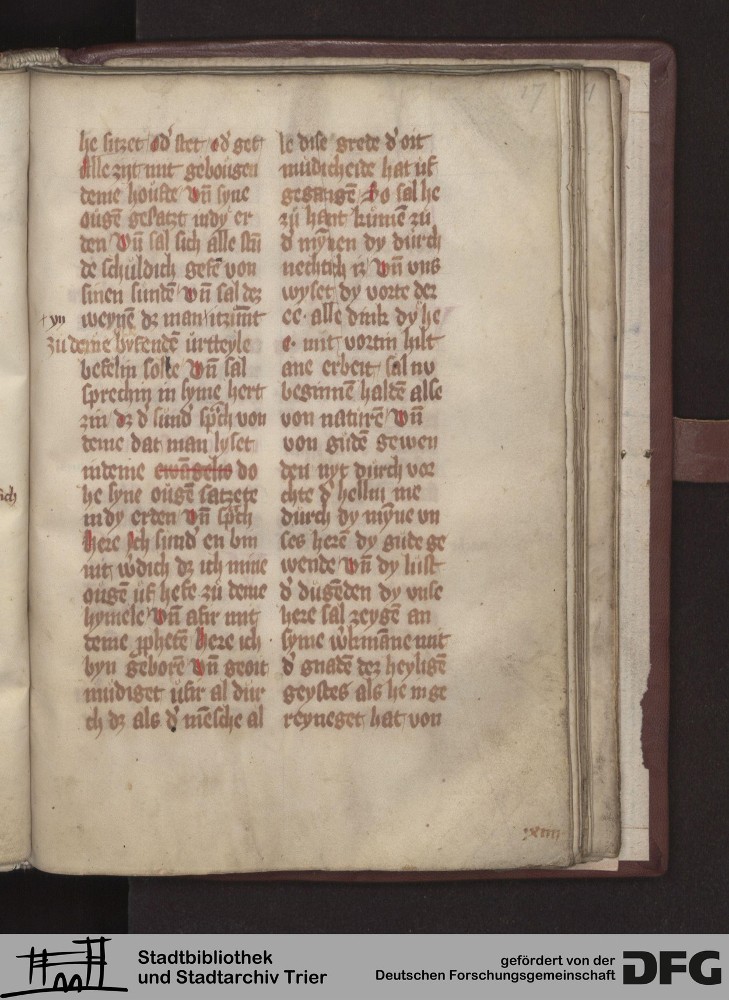 17
he sitzet od' stet od' get
Alle zijt mit gebougen
deme houfte Vn̄ syne
ougē gesatzt in dy er
den Vn̄ sal sich alle stū
de schuldich gebē von
sinen sundē Vn̄ sal dez
† yn weynē dz man itzunt
zu deme byfendē urteyle
befelin solle Vn̄ sal
sprechin in syme hert
zin dz d' sund' sp̄ch von
deme dat man lyset
indeme ewāgelio do
he syne ougē satzete
in dy erden Vn̄ sp̄ch
Here Ich sund' en bin
nit w'dich dz ich mine
ougē uf hebe zu deme
hymele Vn̄ afir mit
deme ꝓphetē Here ich
byn geborē Vn̄ geoit
mudiget ufir al dur
ch dz als d' mēsche al
le dise grede d' oit
mudicheide hat uf
gegangē So sal he
zu hant kumē zu
d' mȳnen dy durch
nechtich is Vn̄ vus
wyset dy vorte der
ee · alle dink dy he
e · mit vortin hilt
ane erbeit sal nv
beginnē haldē alse
von naturē Vn̄
von gudē gewen
den nyt durch vor
chte d' hellin me
durch dy mȳne vn
ses herē dy gude ge
wende Vn̄ dy lust
d' dugēden dy vnse
here sal zeygē an
syme w'kmāne mit
d' gnadē dez heyligē
geystes als he in ge
reyneget hat von
xiiii
Stadtbibliothek
und Stadtarchiv Trier
gefördert von der
Deutschen Forschungsgemeinschaft
DFG